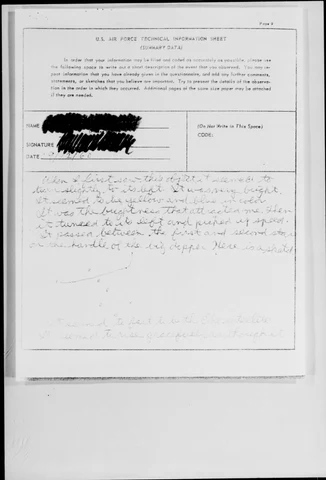 Page 5
U.S. AIR FORCE TECHNICAL INFORMATION SHEET
(SUMMARY DATA)
In order that your information may be filed and coded as accurately as possible, please use
the following space to write out a short description of the event that you observed. You may re-
peat information that you have already given in the questionnaire, and add any further comments,
statements, or sketches that you believe are important. Try to present the details of the observa-
tion in the order in which they occurred. Additional pages of the same size paper may be attached
if they are needed.
NAME
SIGNATURE
DATE
(Do Not Write in This Space)
CODE:
When I first saw this object it seemed to
turn slightly to its left. It was very bright.
It seemed to be yellow and blue in color.
It was the brightness that attracted me. Then
it turned to its left and picked up speed.
It passed between the first and second star
on the handle of the big dipper. Here is a sketch
It seemed to
It seemed to